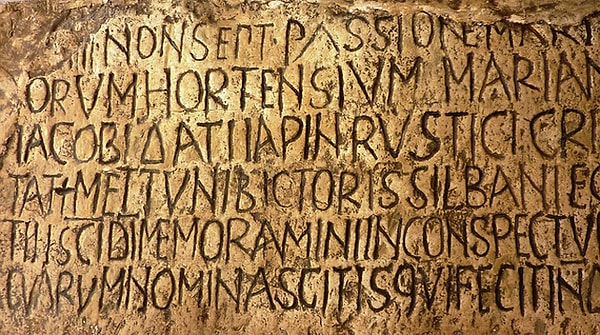 IIII NON SEPT PASSIONE MART
ORVM HORTENSIVM MARIAN
IACOBI DATI IAPIN RVSTICI CRI
TAT+ METTVNI BICTORIS SILBANI EG
TII SCI DI MEMORAMINI IN CONSPECTV
QVORVM NOMINA SCITIS QVI FECIT IND